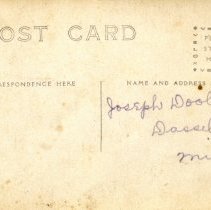 OST CARD
RESPONDENCE HERE
NAME AND ADDRESS
Joseph Dool
Dassel
Mi